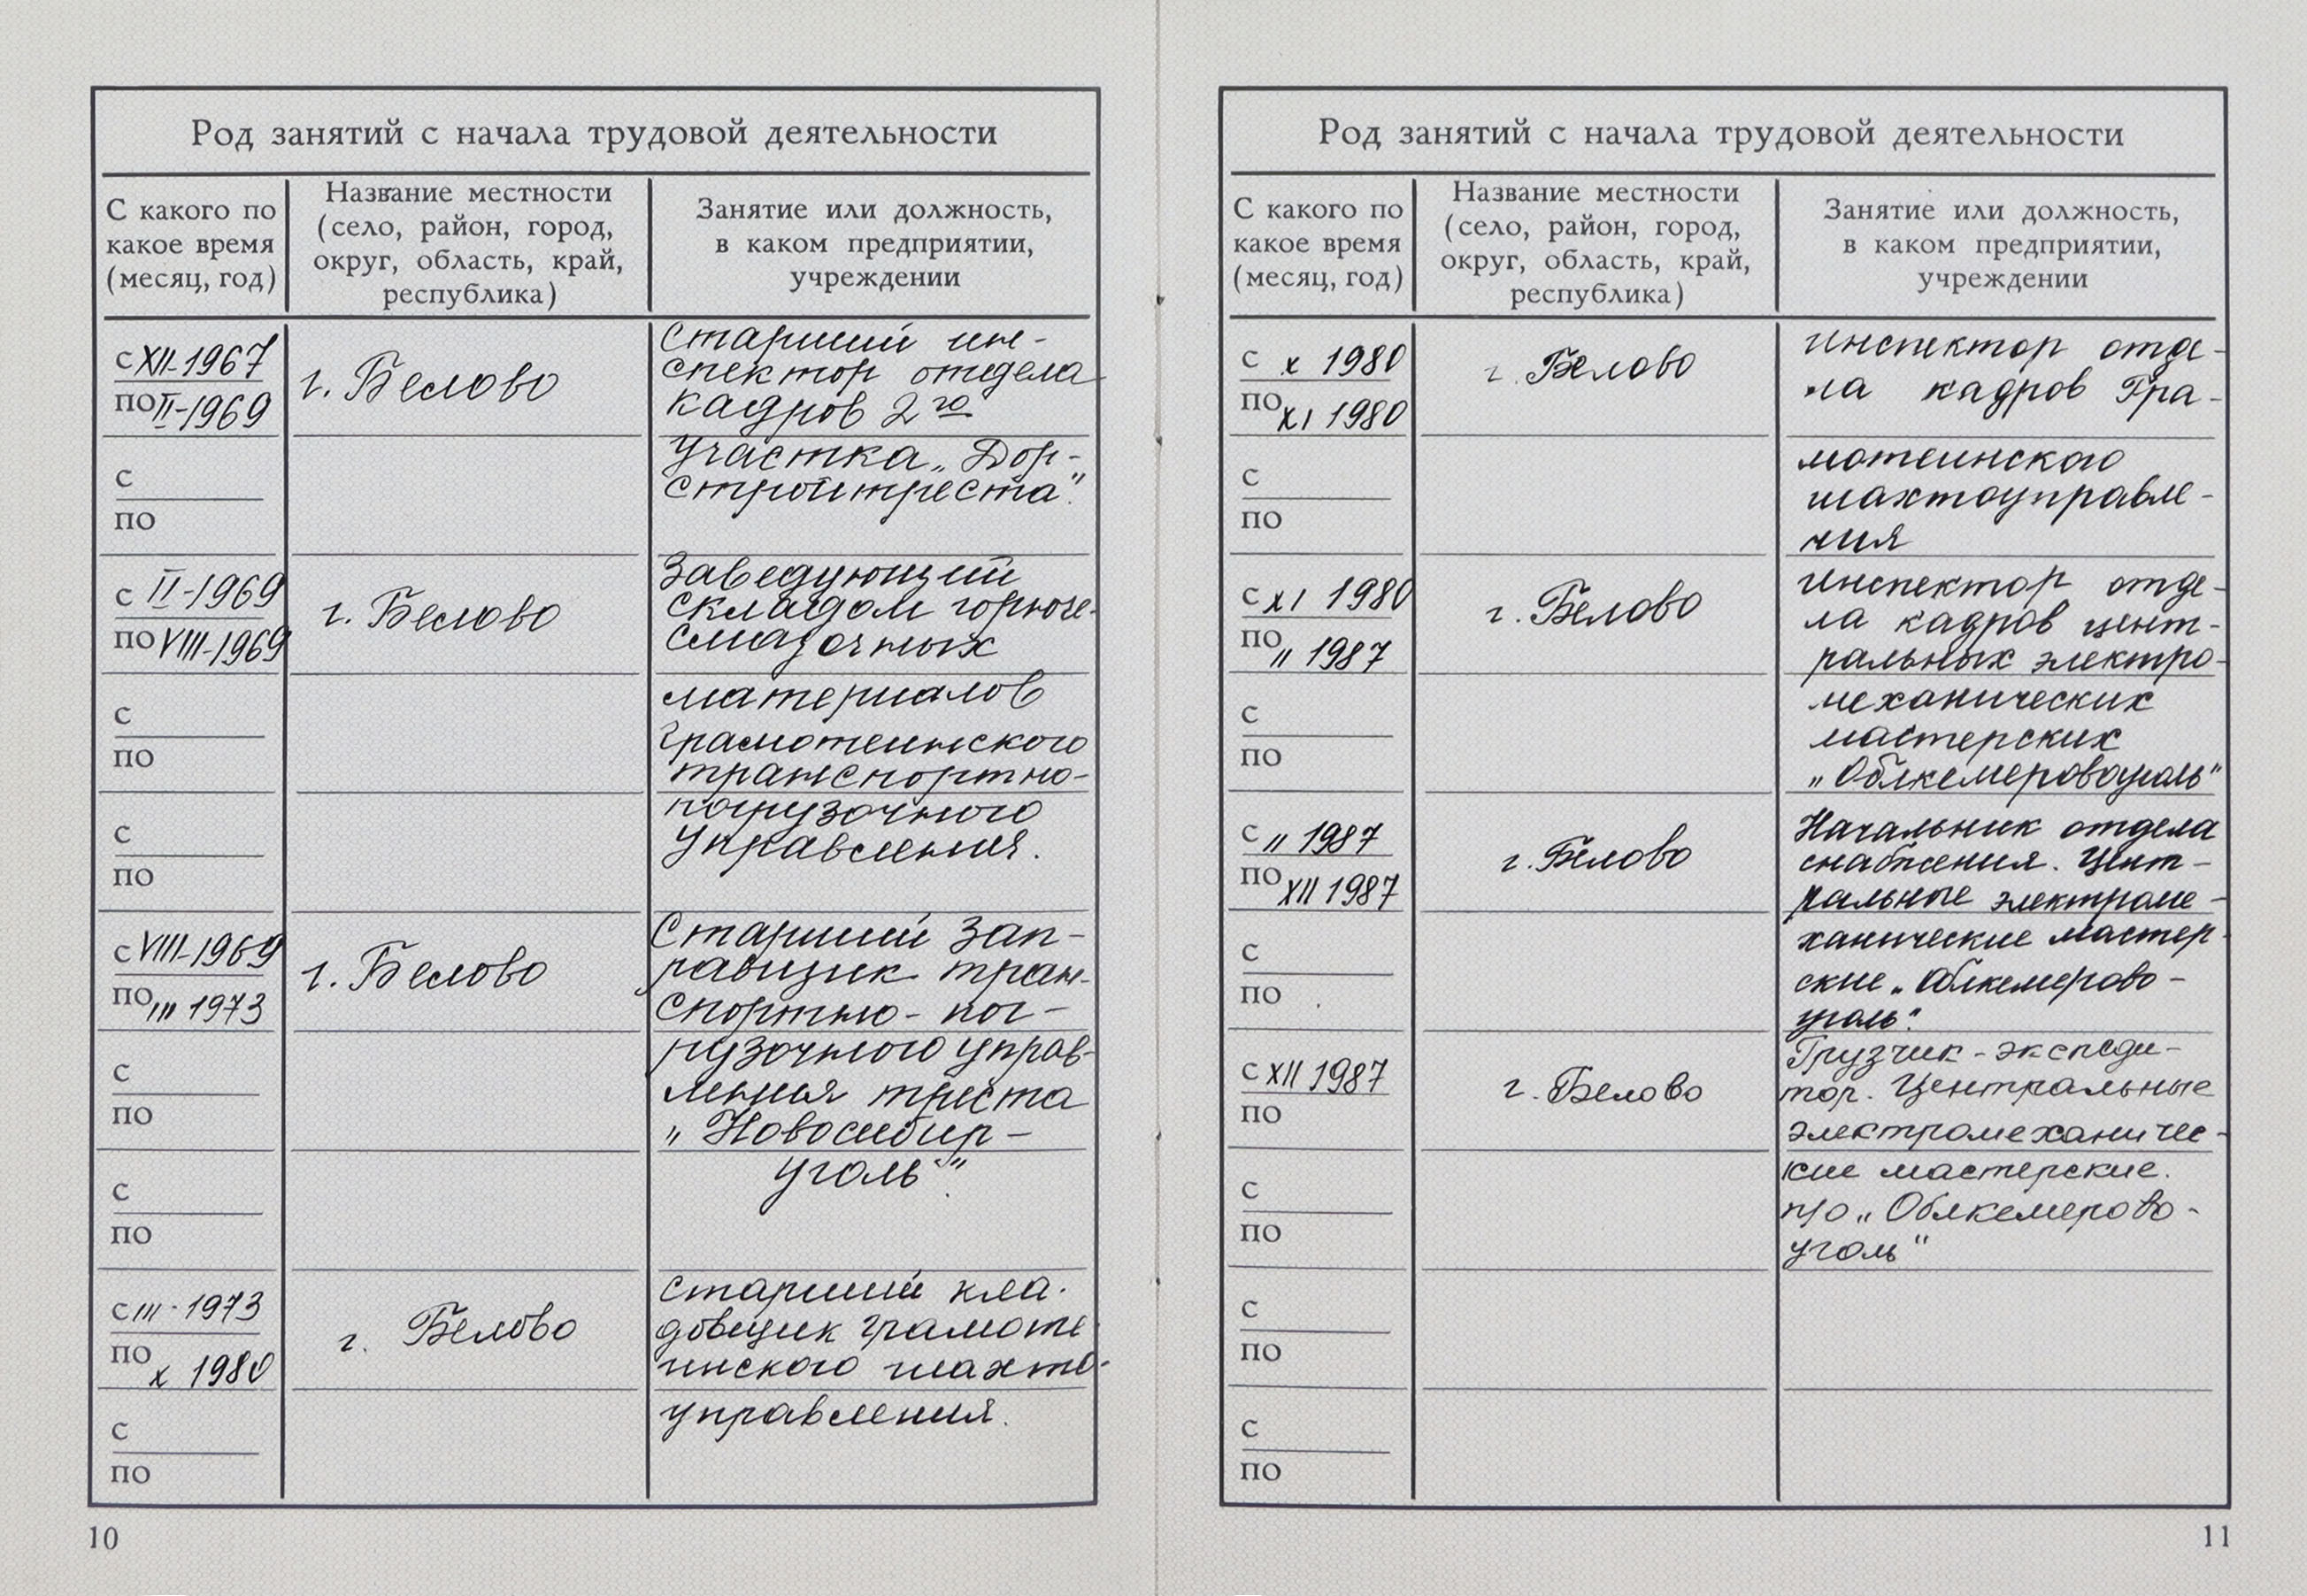 Род занятий с начала трудовой деятельности
С какого по
какое время
(месяц, год)
Название местности
(село, район, город,
округ, область, край,
республика)
Занятие или должность,
в каком предприятии,
учреждении
с XII-1967
по II-1969
г. Белово
Старший ин-
спектор отдела
кадров 2го
участка „Дор-
стройтреста".
с
по
с II-1969
по VIII-1969
г. Белово
Заведующий
складом горюче-
смазочных
материалов
Грамотеинского
транспортно-
погрузочного
управления.
с
по
с
по
с VIII-1969
по III 1973
г. Белово
Старший зап-
равщик тран-
спортно-пог-
рузочного управ-
ления треста
„Новосибир-
уголь".
с
по
с
по
с III-1973
по X 1980
г. Белово
Старший кла-
довщик Грамоте
инского шахто-
управления.
с
по
10
Род занятий с начала трудовой деятельности
С какого по
какое время
(месяц, год)
Название местности
(село, район, город,
округ, область, край,
республика)
Занятие или должность,
в каком предприятии,
учреждении
с X 1980
по XI 1980
г. Белово
инспектор отде-
ла кадров Гра-
мотеинского
шахтоуправле-
ния
с
по
с XI 1980
по II 1987
г. Белово
инспектор отде-
ла кадров цент-
ральных электро-
механических
мастерских
„Облкемеровоуголь"
с
по
с II 1987
по XII 1987
г. Белово
Начальник отдела
снабжения. Цент-
ральные электроме-
ханические мастер-
ские „Облкемерово-
уголь".
с
по
с XII 1987
по
г. Белово
Грузчик-экспеди-
тор. Центральные
электромеханичес-
кие мастерские.
п/о „Облкемерово-
уголь"
с
по
с
по
с
по
11